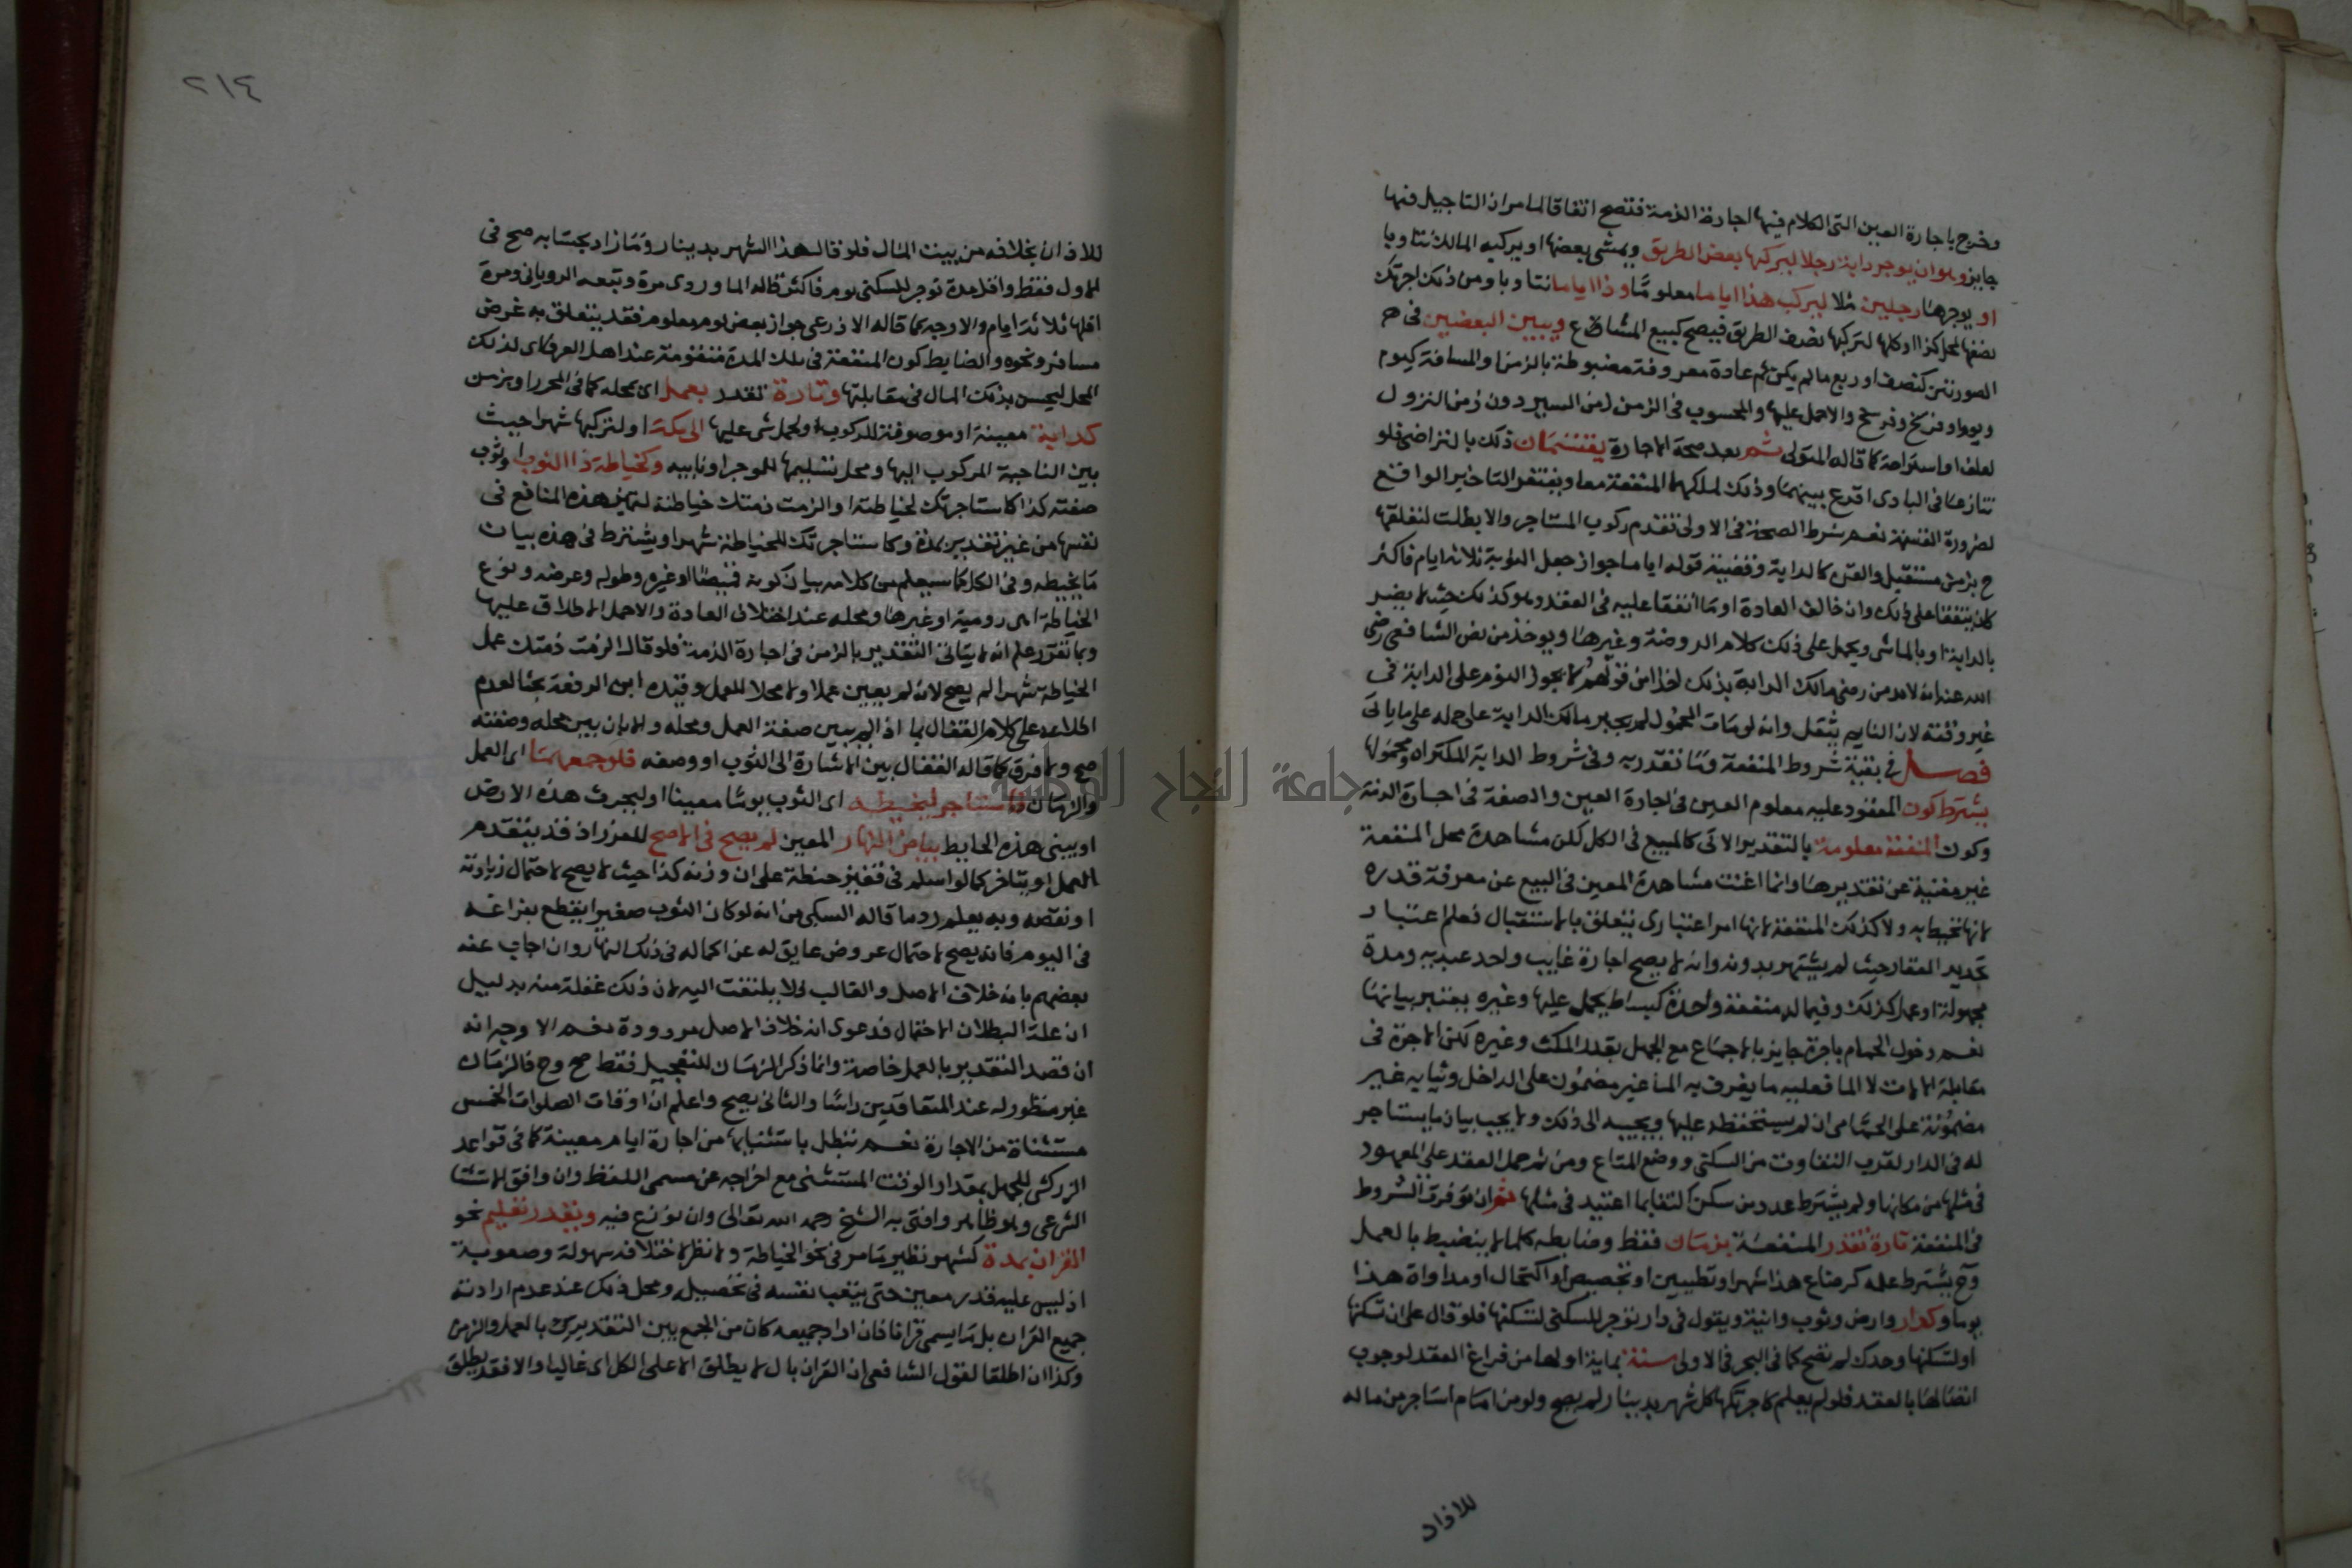 وخرج باجارة العين التى الكلام فيها اجارة الذمة فتصح اتفاقا لما مر ان التاجيل فيها
جايز وهو ان يوجر دابة رجلا ليركبها بعض الطريق ويمشى بعضها او يركبه المالك تناوبا
او يوجرها رجلين مثلا ليركب هذا اياما معلومًا وذا اياما تناوبا ومن ذلك اجرتك
نصفها لمحل كذا او كلها لتركبها نصف الطريق فيصح كبيع المشاع ويبين البعضين فى
الصورتين كنصف او ربع ما لم يكن ثم عادة معروفة مضبوطة بالزمن او المسافة كيوم
ويوم او فرسخ وفرسخ والا حمل عليها والمحسوب فى الزمن زمن السير دون زمن النزول
لعلف او استراحة كما قاله المتولى ثم بعد صحة الاجارة يقتسمان ذلك بالتراضى فلو
تنازعا فى البادى اقرع بينهما وذلك لملكهما المنفعة معا ويغتفر التاخير الواقع
لضرورة القسمة نعم شرط الصحة فى الاولى تقدم ركوب المستاجر والا بطلت لتعلقها
ح بزمن مستقبل والقن كالدابة وقضية قوله اياما جواز جعل النوبة ثلاثة ايام فاكثر
كان يتفقا على ذلك وان خالف العادة او ما اتفقا عليه فى العقد وهو كذلك حيث لم يضر
بالدابة او بالماشى ويحمل على ذلك كلام الروضة وغيرها ويوخذ من نص الشافعى رضى
الله عنه انه لا بد من رضى مالك الدابة بذلك اخذا من قولهم لا يجوز النوم على الدابة فى
غير وقته لان النايم يثقل وانه لو مات المحمول لم يجبر مالك الدابة على حمله على ما ياتى
فصل فى بقية شروط المنفعة وما تقدر به وفى شروط الدابة المكتراه ومحمولها
يشترط كون المعقود عليه معلوم العين فى اجارة العين والصفة فى اجارة الذمة
وكون المنفعة معلومة بالتقدير الاتى كالمبيع فى الكل لكن مشاهدة محل المنفعة
غير مغنية عن تقديرها وانما اغنت مشاهدة العين فى البيع عن معرفة قدره
لانها تحيط به ولا كذلك المنفعة لانها امر اعتبارى يتعلق بالاستقبال فعلم اعتبار
تحديد العقار حيث لم يشتهر بدونه وانه لا يصح اجارة غايب واحد عبديه ومدة
مجهولة او عمل كذلك وفيما له منفعة واحدة كبساط يحمل عليها وغيره يعتبر بيانها
نعم دخول الحمام باجرة جايز بالاجماع مع الجهل بقدر المكث وغيره لكن الاجرة فى
مقابلة الالات لا الما فعليه ما يغرف به الما غير مضمون على الداخل وثيابه غير
مضمونة على الحمامى ان لم يستحفظه عليها ويجيبه الى ذلك ولا يجب بيان ما يستاجر
له فى الدار لقرب التفاوت من السكنى ووضع المتاع ومن ثم حمل العقد على المعهود
فى مثلها من مكانها ولم يشترط عدد من يسكن اكتفا بما اعتيد فى مثلها ثم ان توفرت الشروط
فى المنفعة تارة تقدر المنفعة بزمان فقط وضابطه كلما لا ينضبط بالعمل
وح يشترط علمه كرضاع هذا شهرا وتطيين او تجصيص او اكتحال او مداواة هذا
يوما وكدار وارض وثوب وانية ويقول فى دار توجر للسكنى لتسكنها فلو قال على ان تسكنها
او لتسكنها وحدك لم تصح كما فى البحر فى الاولى سنة بماية اولها من فراغ العقد لوجوب
اتصالها بالعقد فلو لم يعلم كاجرتكها كل شهر بدينار لم يصح ولو من امام استاجر من ماله
للاذان
٢١٤
للاذان بخلافه من بيت المال فلو قال هذا الشهر بدينار وما زاد بحسابه صح فى
الاول فقط واقل مدة توجر للسكنى يوم فاكثر قاله الماوردى مرة وتبعه الرويانى ومرة
اقلها ثلاثة ايام والاوجه كما قاله الاذرعى جواز بعض يوم معلوم فقد يتعلق به غرض
مسافر ونحوه والضابط كون المنفعة فى تلك المدة متقومة عند اهل العرف اى لذلك
المحل ليحسن بذلك المال فى مقابلتها وتارة تقدر بعمل اى محله كما فى المحرر او بزمن
كدابة معينة او موصوفة للركوب او لحمل شى عليها الى مكة او لتركبها شهرا حيث
بين الناحية المركوب اليها ومحل تسليمها للموجر او نايبه وكخياطة ذا الثوب او ثوب
صفته كذا كاستاجرتك لخياطته او الزمت ذمتك خياطته لتميز هذه المنافع فى
نفسها من غير تقدير بمدة وكاستاجرتك للخياطة شهرا ويشترط فى هذه بيان
ما يخيطه وفى الكل كما سيعلم من كلامه بيان كونه قميصا او غيره وطوله وعرضه ونوع
الخياطة اهى رومية او غيرها ومحله عند اختلاف العادة والا حمل الاطلاق عليها
وبما تقرر علم انه لا يتاتى التقدير بالزمن فى اجارة الذمة فلو قال الزمت ذمتك عمل
الخياطة شهرا لم يصح لانه لم يعين عملا ولا محلا للعمل وقيده ابن الرفعة بحثا لعدم
اطلاعه على كلام القفال بما اذا لم يبين صفة العمل ومحله والا بان بين محله وصفته
صح ولا فرق كما قاله القفال بين الاشارة الى الثوب او وصفه فلو جمعهما اى العمل
والزمان فاستاجر ليخيطه اى الثوب يوما معينا او ليحرث هذه الارض
او يبنى هذه الحايط بياض النهار المعين لم يصح فى الاصح للغرر اذ قد يتقدم
العمل او يتاخر كما لو اسلم فى قفيز حنطة على ان وزنه كذا حيث لا يصح لاحتمال زيادته
او نقصه وبه يعلم رد ما قاله السبكى من انه لو كان الثوب صغيرا يقطع بفراغه
فى اليوم فانه يصح لاحتمال عروض عايق له عن اكماله فى ذلك النهار وان اجاب عنه
بعضهم بانه خلاف الاصل والغالب ولا يلتفت اليه لان ذلك غفلة منه بدليل
ان علة البطلان الاحتمال فدعوى انه خلاف الاصل مردودة نعم الاوجه انه
ان قصد التقدير بالعمل خاصة وانما ذكر الزمان للتعجيل فقط صح وح فالزمان
غير منظور له عند المتعاقدين راسا والثانى يصح واعلم ان اوقات الصلوات الخمس
مستثناة من الاجارة نعم تبطل باستثنايها من اجارة ايام معينة كما فى قواعد
الزركشى للجهل بمقدار الوقت المستثنى مع اخراجه عن مسمى اللفظ وان وافق الاستثنا
الشرعى وهو ظاهر وافتى به الشيخ رحمه الله تعالى وان نوزع فيه وتقدر تعليم نحو
القران بمدة كشهر نظير ما مر فى نحو الخياطة ولا نظر لاختلافه سهولة وصعوبة
اذ ليس عليه قدر معين حتى يتعب نفسه فى تحصيله ومحل ذلك عند عدم ارادته
جميع القران بل ما يسمى قرانا فان اراد جميعه كان من الجمع بين التقديرين بالعمل والزمن
وكذا ان اطلقا لقول الشافعى ان القران بال لا يطلق الا على الكل اى غالبا والا فقد يطلق
جامعة النجاح الوطنية